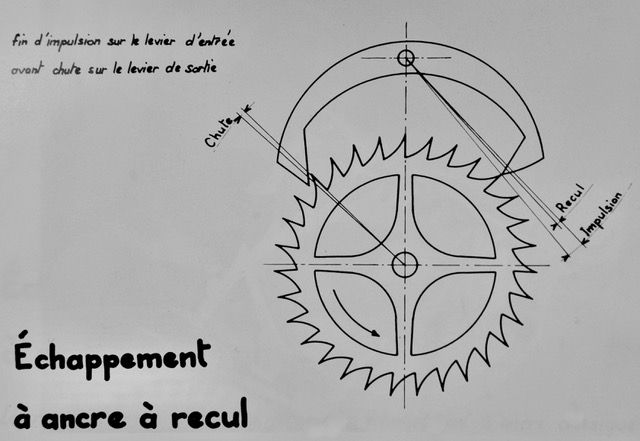 fin d'impulsion sur le levier d'entrée
avant chute sur le levier de sortie
Chute
Recul
Impulsion
Échappement
à ancre à recul